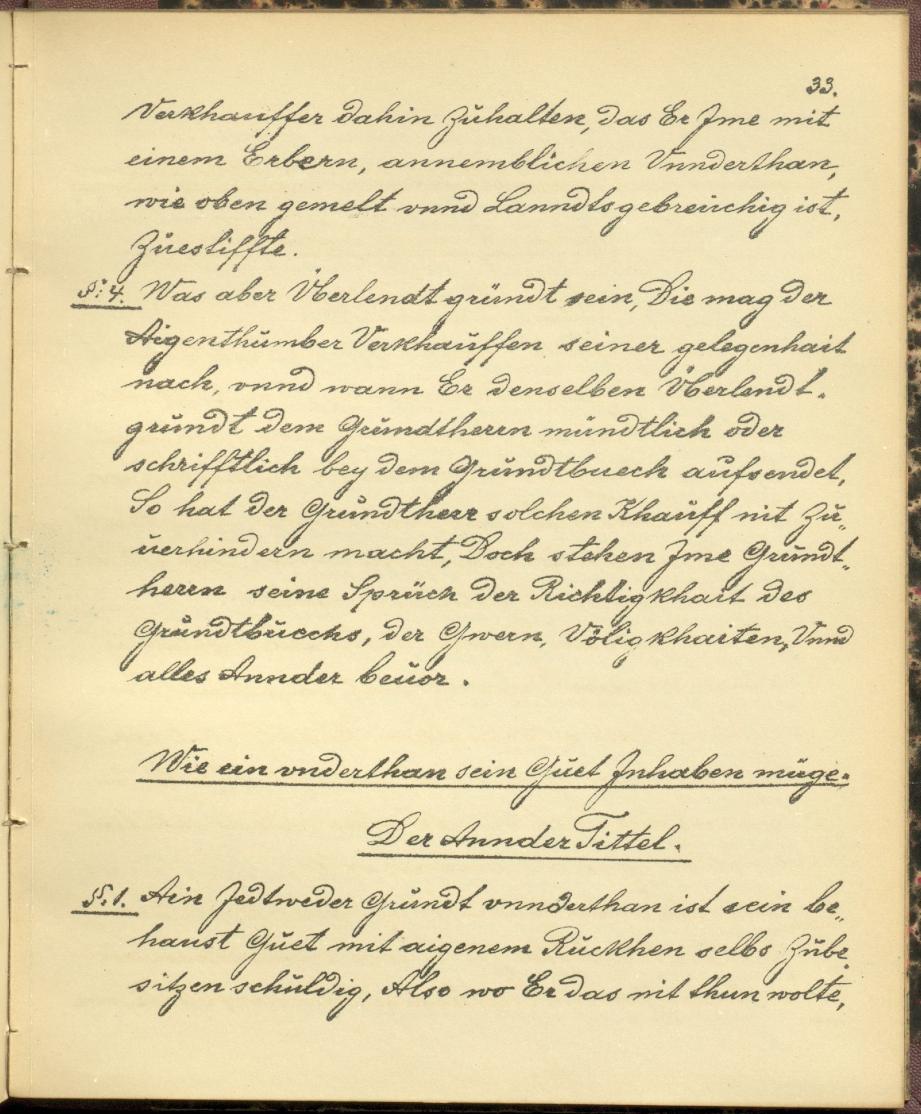 33.
Verkhauffer dahin Zuhalten, das Er Jme mit
einem Erbern, annemblichen Vnnderthan,
wie oben gemelt vnnd Lanndtsgebreuchig ist,
Züestiffte.
§: 4. Was aber Überlendt gründt sein, Die mag der
Aigenthumber Verkhauffen seiner gelegenhait
nach, vnnd wann Er denselben Überlendt-
grundt dem Grundtherrn mündtlich oder
schrifftlich bey dem Grundtbuech aufsendet,
So hat der Grundtherr solchen Khauff nit Zu„
uerhindern macht, Doch stehen Jme Grundt„
herrn seine Sprüch der Richtigkhait des
Grundtbuechs, der Gwern, Völigkhaiten, Vnnd
alles Annder beuor.
Wie ein vnderthan sein Guet Jnhaben müge.
Der Annder Tittel.
§: 1. Ain Jedtweder Grundt vnnderthan ist sein be„
haust Guet mit aigenem Ruckhen selbs Zube„
sitzen schuldig, Also wo Er das nit thun wolte,